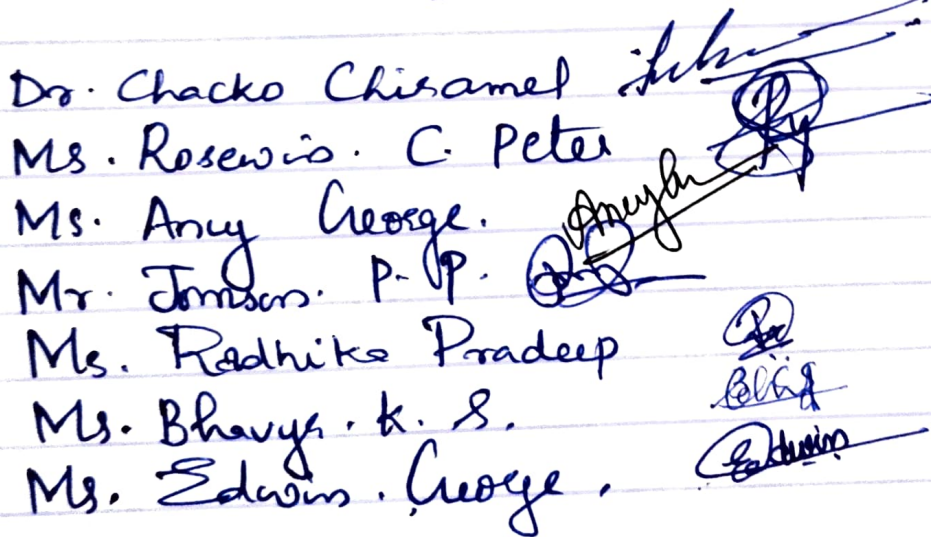 Dr. Chacko Chisamel
Ms. Rosewin. C. Peter
Ms. Ancy George.
Mr. Jomson. P. P.
Ms. Radhika Pradeep
Ms. Bhavya. K. S.
Ms. Edwin. George.
Edwin